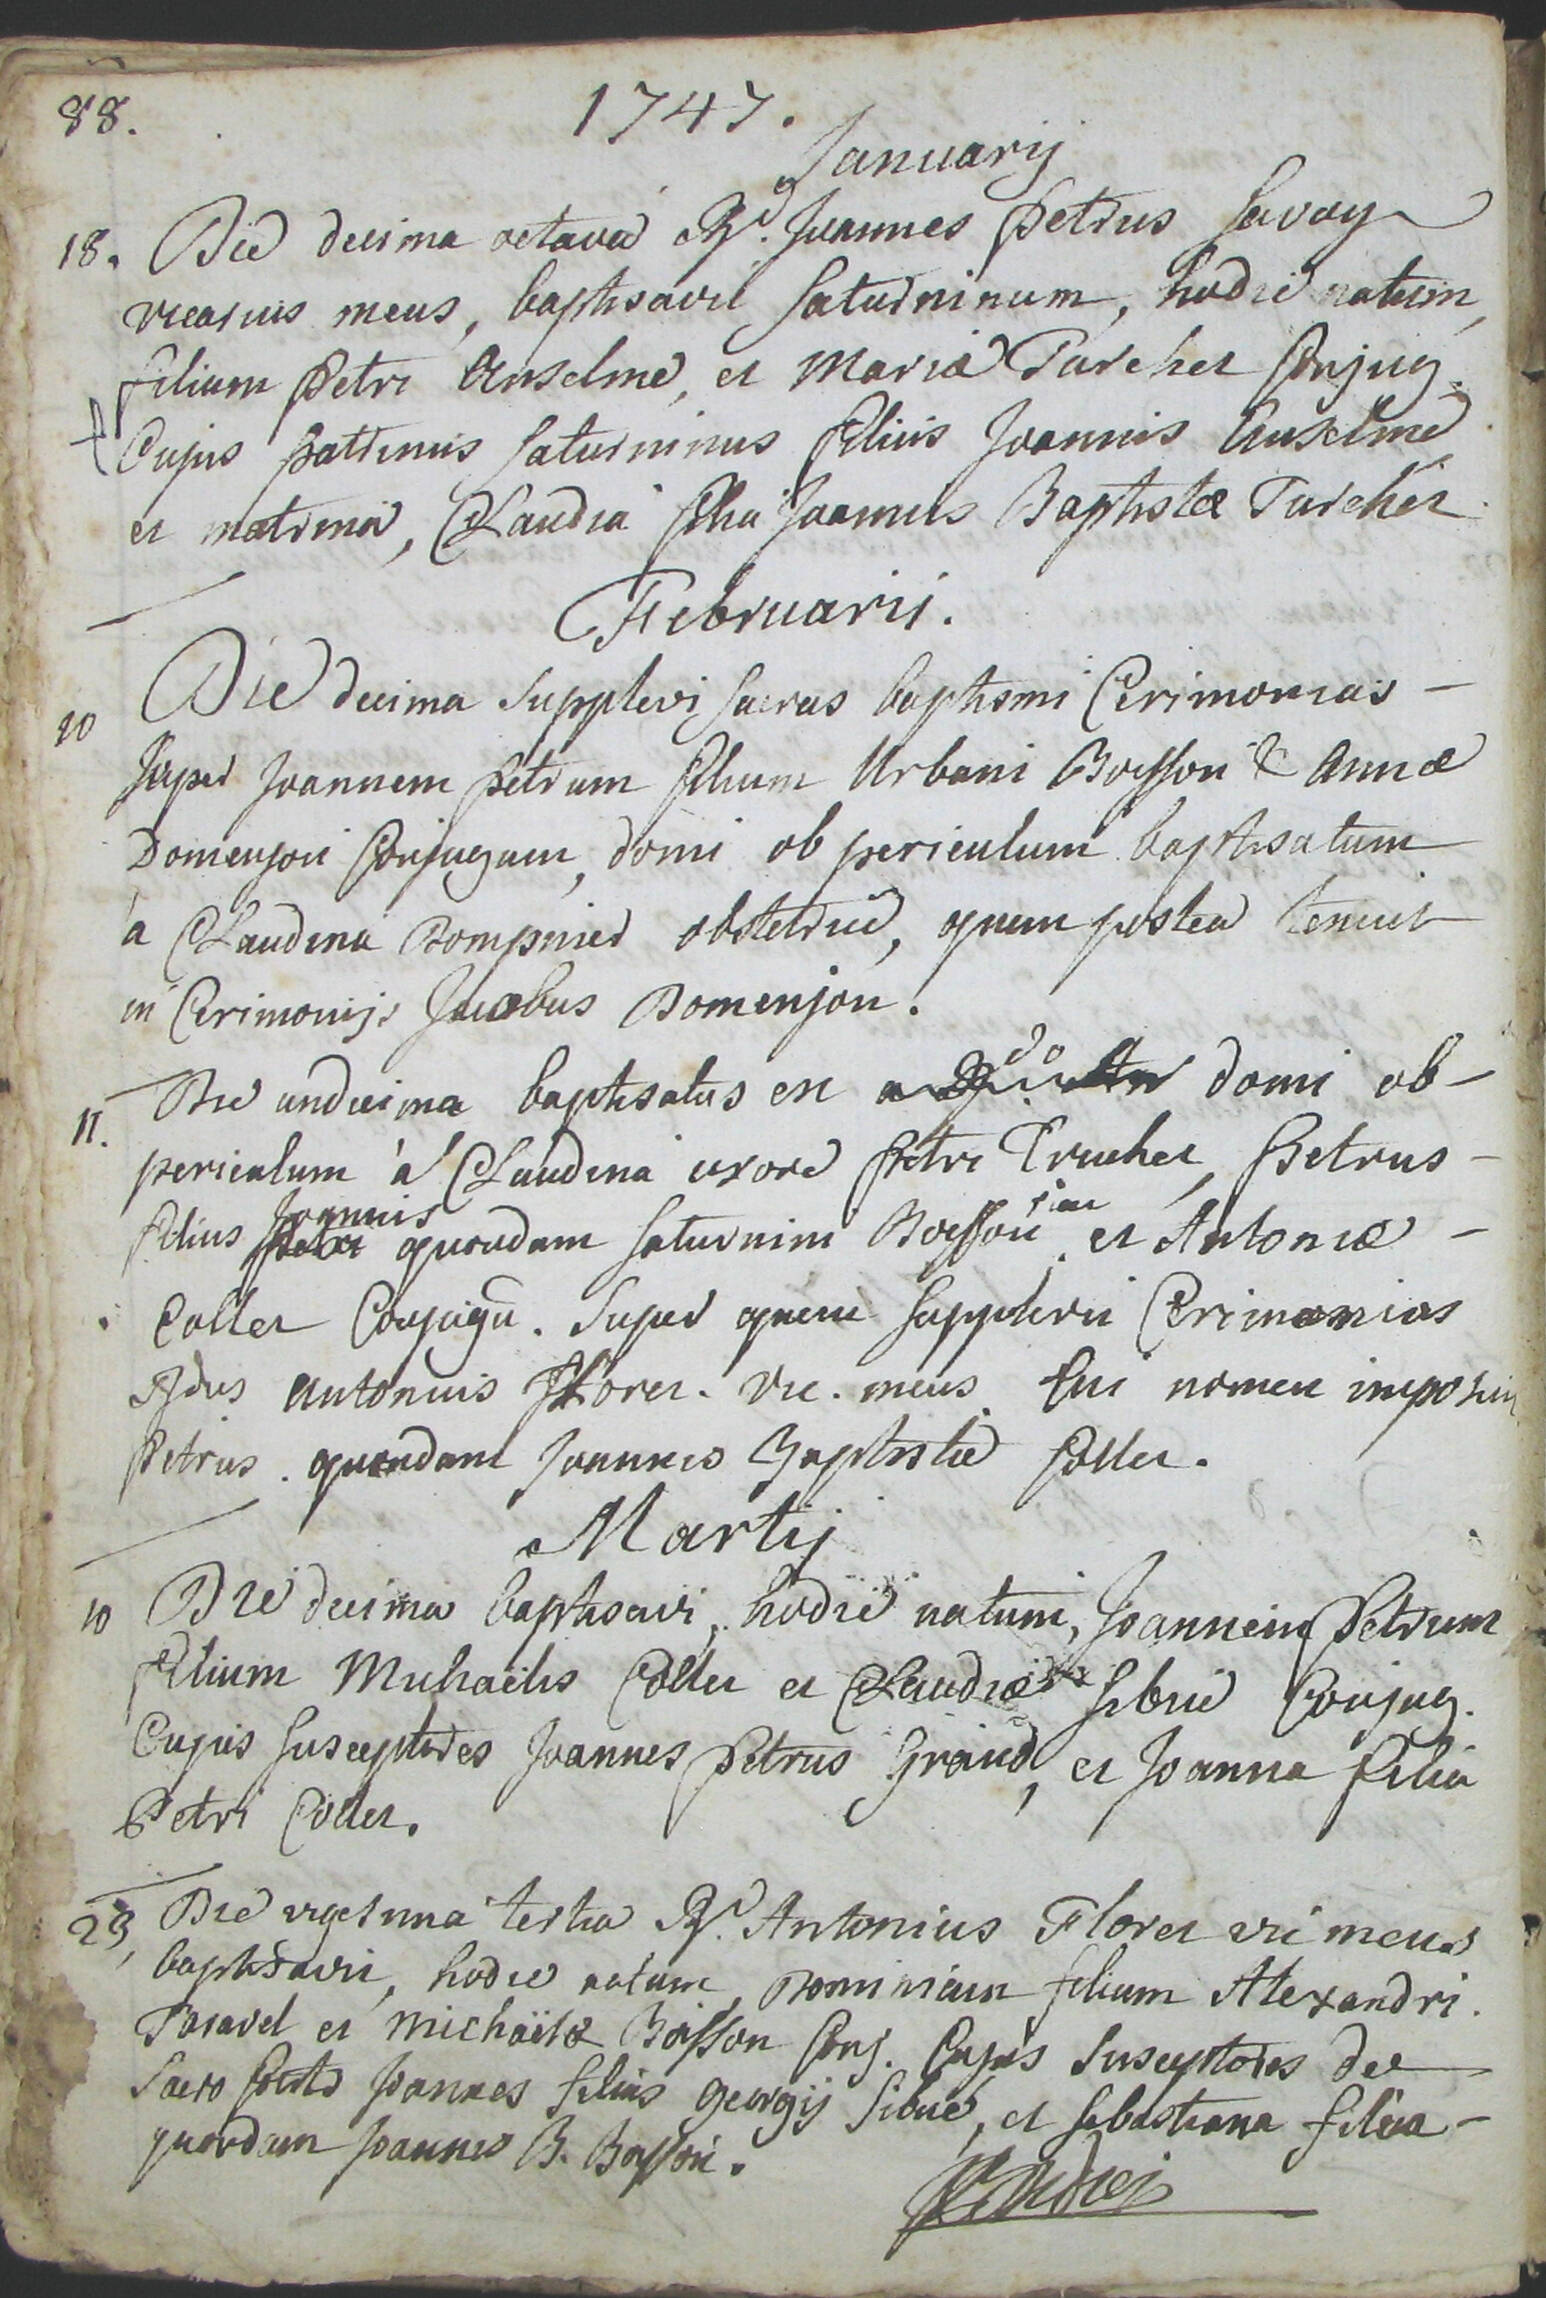 88.
1747.
Januarij
18. Die decima octava Rd. Joannes Petrus Savoy
vicarius meus, baptisavit Saturninum, hodie natum,
filium Petri Anselme, et Mariæ Turchet Conjug.
† Cujus patrinus Saturninus filius Joannis Anselme
et matrina, Claudia filia Joannis Baptistæ Turchet.
Februarii.
10 Die decima Supplevi sacras baptismi Cerimonias –
super Joannem Petrum filium Urbani Boisson & Annæ
Domenjon Conjugum, domi ob periculum baptisatum
à Claudina Dompnier obstetrice, quem postea tenuit
in Cerimonijs Jacobus Domenjon.
11. Die undecima baptisatus est a Rdo An domi ob –
periculum à Claudina uxore Petri Truchet, Petrus –
filius Petri Joannis quondam Saturnini Boisson et Antoniæ –
Collet Conjugũ. Super quem supplevit Cerimonias
Rdus Antonius Floret. vic. meus. Cui nomen imposuit
Petrus quondam Joannis Baptistæ Collet.
Martij
10 Die decima baptisavi, hodie natum, Joannem Petrum
filium Michaëlis Collet et Claudiæ Sibué Conjug.
Cujus susceptores Joannes Petrus Graud, et Joanna filia
Petri Collet.
23, Die vigesima tertia Rd. Antonius Floret vic meus
baptisavit, hodie natum, Dominicum filium Alexandri
Taravel et Michaëlæ Boisson Conj. Cujus Susceptores de
Sacro fonte Joannes filius Georgij Sibué, et Sebastiana filia –
quondam Joannis B. Boisson.